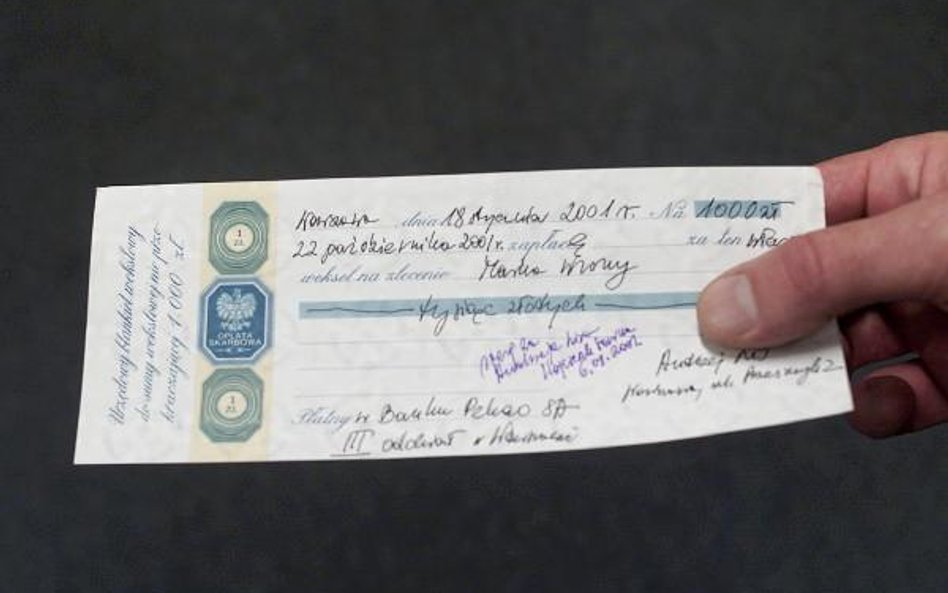 Urzędowy blankiet wekslowy
do sumy wekslowej nie prze-
kraczającej 1.000 zł
1
ZŁ
OPŁATA
SKARBOWA
1
ZŁ
Warszawa dnia 18 stycznia 2001 r. Na 1000 zł
22 października 2001 r. zapłacę za ten
weksel na zlecenie Marka Wrony
tysiąc złotych
6.01.2001
Andrzej
Warszawa, ul.
Płatny w Banku Pekao SA
III oddział w Warszawie